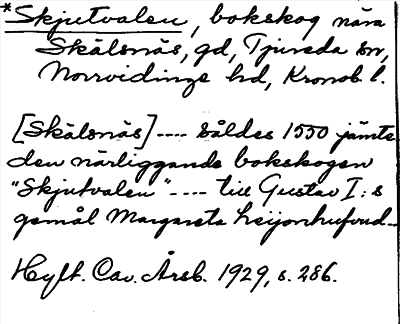 *Skjutvalen, bokskog nära
Skälsnäs, gd, Tjureda sn,
Norrvidinge hd, Kronob. l.
[Skälsnäs] ---- såldes 1550 jämte
den närliggande bokskogen
"Skjutvalen" ---- till Gustav I:s
gemål Margareta Leijonhufvud_
Hylt. Cav. Årsb. 1929, s. 286.